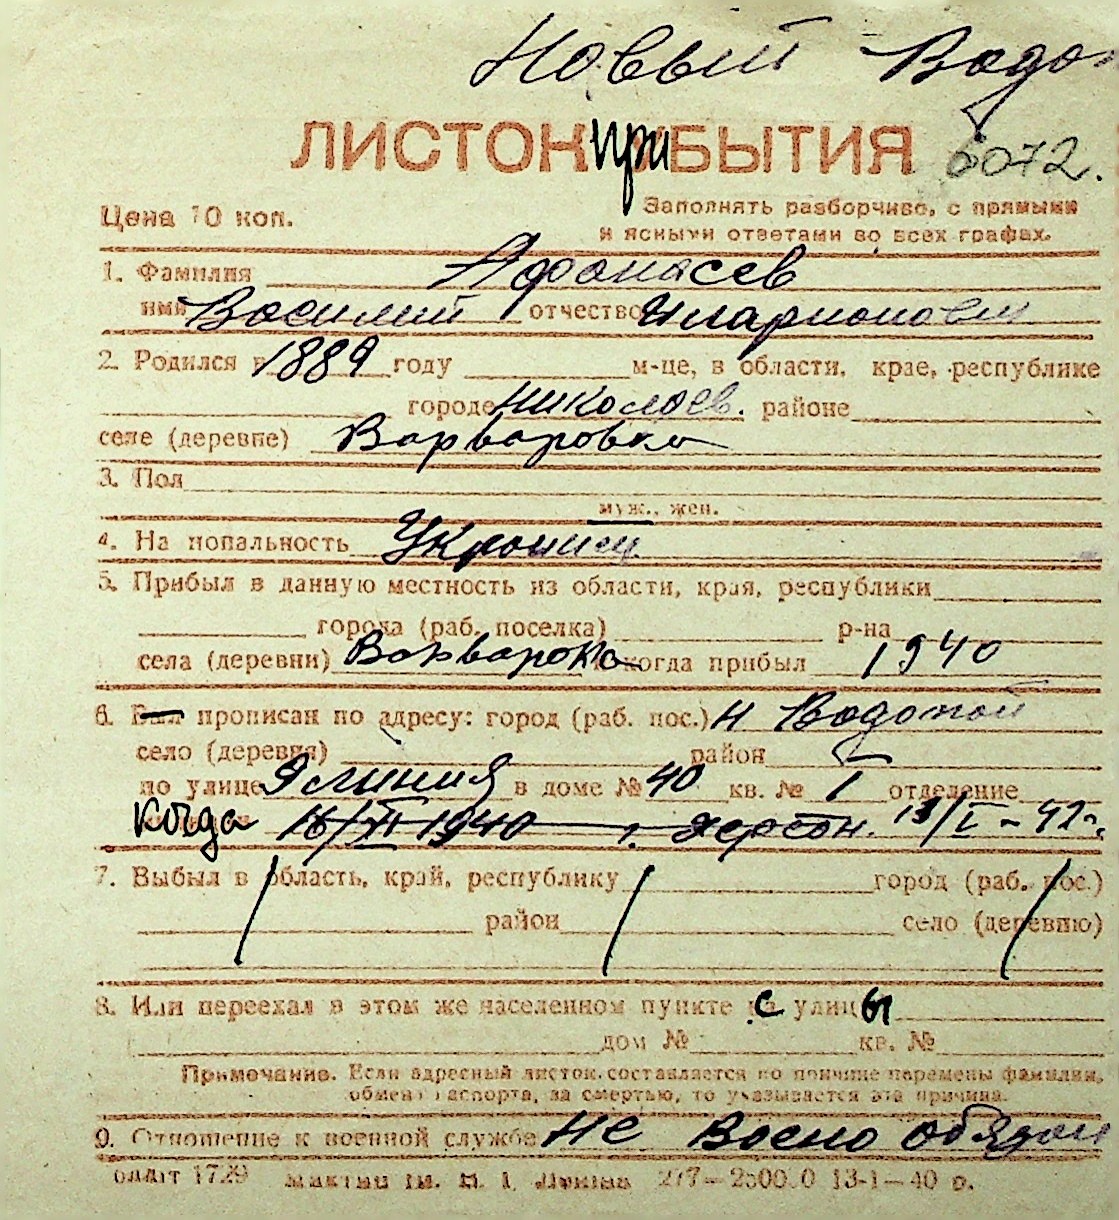 Новый Водо
ЛИСТОК при БЫТИЯ 6072.
Цена 10 коп. Заполнять разборчиво, с прямыми
и ясными ответами во всех графах.
1. Фамилия Афонасев
имя Василий отчество Иларионович
2. Родился в 1889 году м-це, в области, крае, республике
городе Николаев. районе
селе (деревне) Варваровка
3. Пол
муж., жен.
4. На попальность Украинец
5. Прибыл в данную местность из области, края, республики
города (раб. поселка) р-на
села (деревни) Варварока когда прибыл 1940
6. Был прописан по адресу: город (раб. пос.) Н Водопой
село (деревня) район
по улице 9 линия в доме № 40 кв. № 1 отделение
Когда 16/VI 1940 г. Херсон. 13/I-42г.
7. Выбыл в область, край, республику город (раб. пос.)
район село (деревню)
8. Или переехал в этом же населенном пункте с улицы
дом № кв. №
Примечание. Если адресный листок составляется по причине перемены фамилии,
обмена паспорта, за смертью, то указывается эта причина.
9. Отношение к военной службе Не Воено обязан
1729 277—2500 0 13-1—40 р.